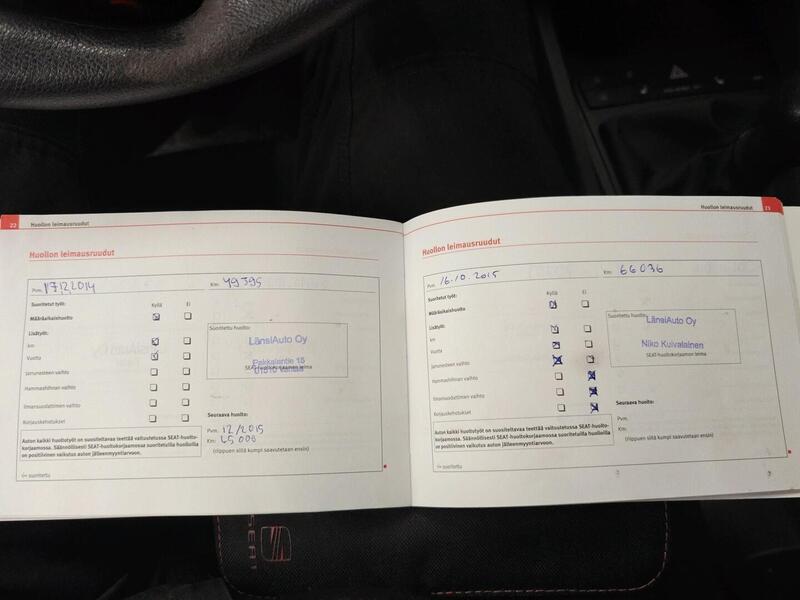 22
Huollon leimausruudut
Huollon leimausruudut
Pvm. 17.12.2014
Km: 49395
Suoritetut työt:
Kyllä
Ei
Määräaikaishuolto
Lisätyöt:
km
Vuotta
Jarrunesteen vaihto
Hammashihnan vaihto
Ilmansuodattimen vaihto
Korjauskehotukset
Suoritettu huolto:
LänsiAuto Oy
Pakkalantie 15
01510 Vantaa
SEAT-huoltokorjaamon leima
Seuraava huolto:
Pvm. 12/2015
Km: 65000
(riippuen siitä kumpi saavutetaan ensin)
Auton kaikki huoltotyöt on suositeltavaa teettää valtuutetussa SEAT-huolto-
korjaamossa. Säännöllisesti SEAT-huoltokorjaamossa suoritetuilla huolloilla
on positiivinen vaikutus auton jälleenmyyntiarvoon.
✓= suoritettu
Huollon leimausruudut
23
Huollon leimausruudut
Pvm. 16.10.2015
Km: 66036
Suoritetut työt:
Kyllä
Ei
Määräaikaishuolto
Lisätyöt:
km
Vuotta
Jarrunesteen vaihto
Hammashihnan vaihto
Ilmansuodattimen vaihto
Korjauskehotukset
Suoritettu huolto:
LänsiAuto Oy
Niko Kuivalainen
SEAT-huoltokorjaamon leima
Seuraava huolto:
Pvm.
Km:
(riippuen siitä kumpi saavutetaan ensin)
Auton kaikki huoltotyöt on suositeltavaa teettää valtuutetussa SEAT-huolto-
korjaamossa. Säännöllisesti SEAT-huoltokorjaamossa suoritetuilla huolloilla
on positiivinen vaikutus auton jälleenmyyntiarvoon.
✓= suoritettu
SEAT